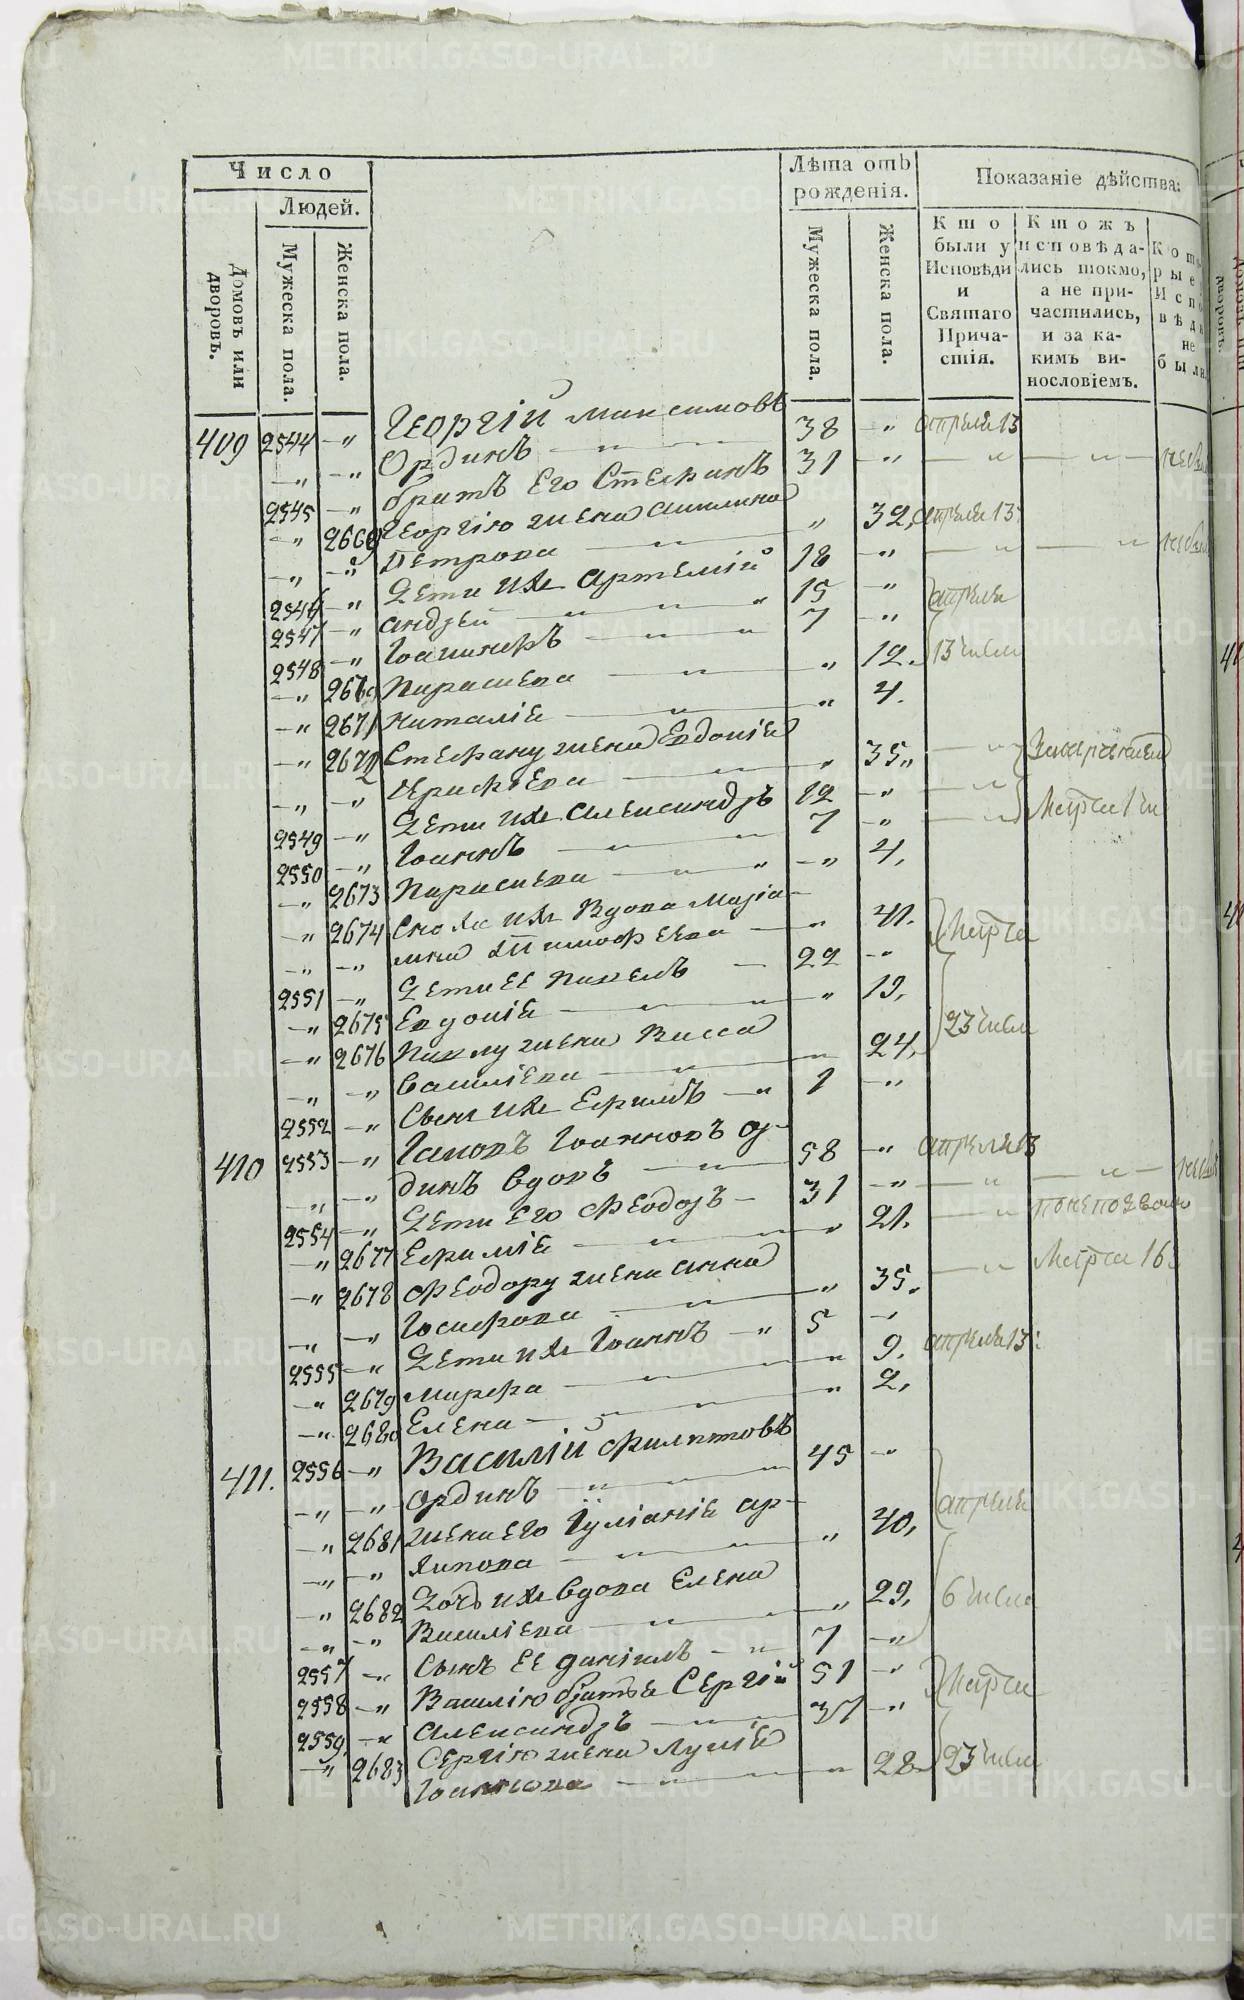 Число
Людей.
Домовъ или дворовъ.
Мужеска пола.
Женска пола.
Лѣта отъ рожденія.
Мужеска пола.
Женска пола.
Показаніе дѣйства:
Кто были у Исповѣди и Святаго Причастія.
Ктожъ исповѣдались токмо, а не причастились, и за какимъ винословіемъ.
409 2544 —„ Георгій Максимовъ
—„ —„ Ординъ —„— 38 —„ апреля 13
2545 —„ братъ Его Стефанъ 31 —„ —„— —„—
—„ Георгію жена
Петрова —„— „ 32, апреля 13
2546 —„ Дети ихъ Артемій 18 —„ —„— —„—
2547 —„ Андрей —„— „ 15 —„ апреля
2548 —„ 7 —„
—„ Параскева —„— „ 12. 13 числа
—„ 2671 Наталіа —„— „ 4.
—„ 2672 Стефану жена Евдокіа
—„ —„ —„— „ 35„ —„
2549 —„ Дети ихъ Александръ 12 —„ —„
2550 —„ Іоаннъ —„— 7 „ —„ Марта
—„ 2673 Параскева —„— „ —„ 4,
—„ 2674 Сноха ихъ Вдова Маріа-
—„ —„ мна Тимофеева — „ 41. Марта
2551 —„ Дети ее Павелъ — 22 —„
—„ 2675 Евдокіа —„— „ 19, 23 числа
—„ 2676 Павлу жена Васса
—„ —„ Василіева —„— „ 24,
2552 —„ Сынъ ихъ Ефимъ —„ 1 —„
410 2553 —„ Іаковъ Іоанновъ Ор-
—„ —„ динъ вдовъ —„— 58 —„ апреля 13
2554 —„ Дети Его Феодоръ — 31 —„ —„— —„—
—„ 2677 Ефиміа —„— „ 21. —„
—„ 2678 Феодору жена Анна
—„ —„ Іосифова —„— „ 35. —„ Марта 16
2555 —„ Дети ихъ Іоаннъ —„ 5 —„
—„ 2679 Марфа —„— „ 9. апреля 13:
—„ 2680 Елена —„— „ 2,
411. 2556 —„ Василій Филиповъ
—„ —„ Ординъ —„— 45 —„ апреля
—„ 2681 жена его Іуліаніа Ар-
—„ —„ хипова —„— „ 40,
—„ 2682 Дочь ихъ вдова Елена
—„ —„ Василіева —„— „ 29, 6 числа
2557 —„ Сынъ Ее Даніилъ —„ 7 —„
2558 —„ Василію братья Сергій 51 —„ Марта
2559, —„ Александръ —„— 37 —„
—„ 2683 Сергію жена
Іоаннова —„— „ 28 23 числа
METRIKI.GASO-URAL.RU